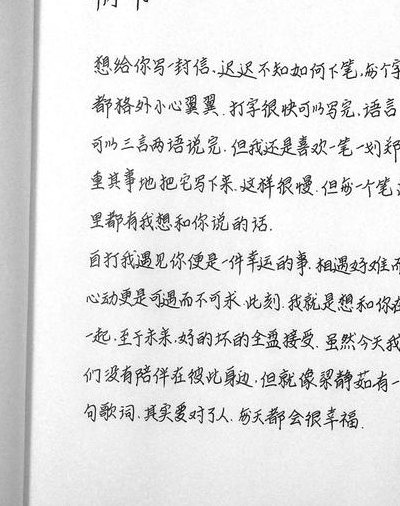 情书
想给你写一封信、迟迟不知如何下笔,每个字
都格外小心翼翼.打字很快可以写完,语言
可以三言两语说完.但我还是喜欢一笔一划郑
重其事地把它写下来.这样很慢.但每一个笔
里都有我想和你说的话.
自打我遇见你便是一件幸运的事.相遇好难而
心动更是可遇而不可求.此刻.我就是想和你在
一起.至于未来.好的坏的全盘接受.虽然今天我
们没有陪伴在彼此身边.但就像梁静茹有一
句歌词.其实爱对了人.每天都会很幸福.